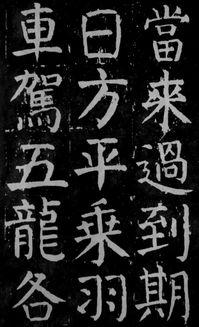 當来過到期
日方平乗羽
車駕五龍各